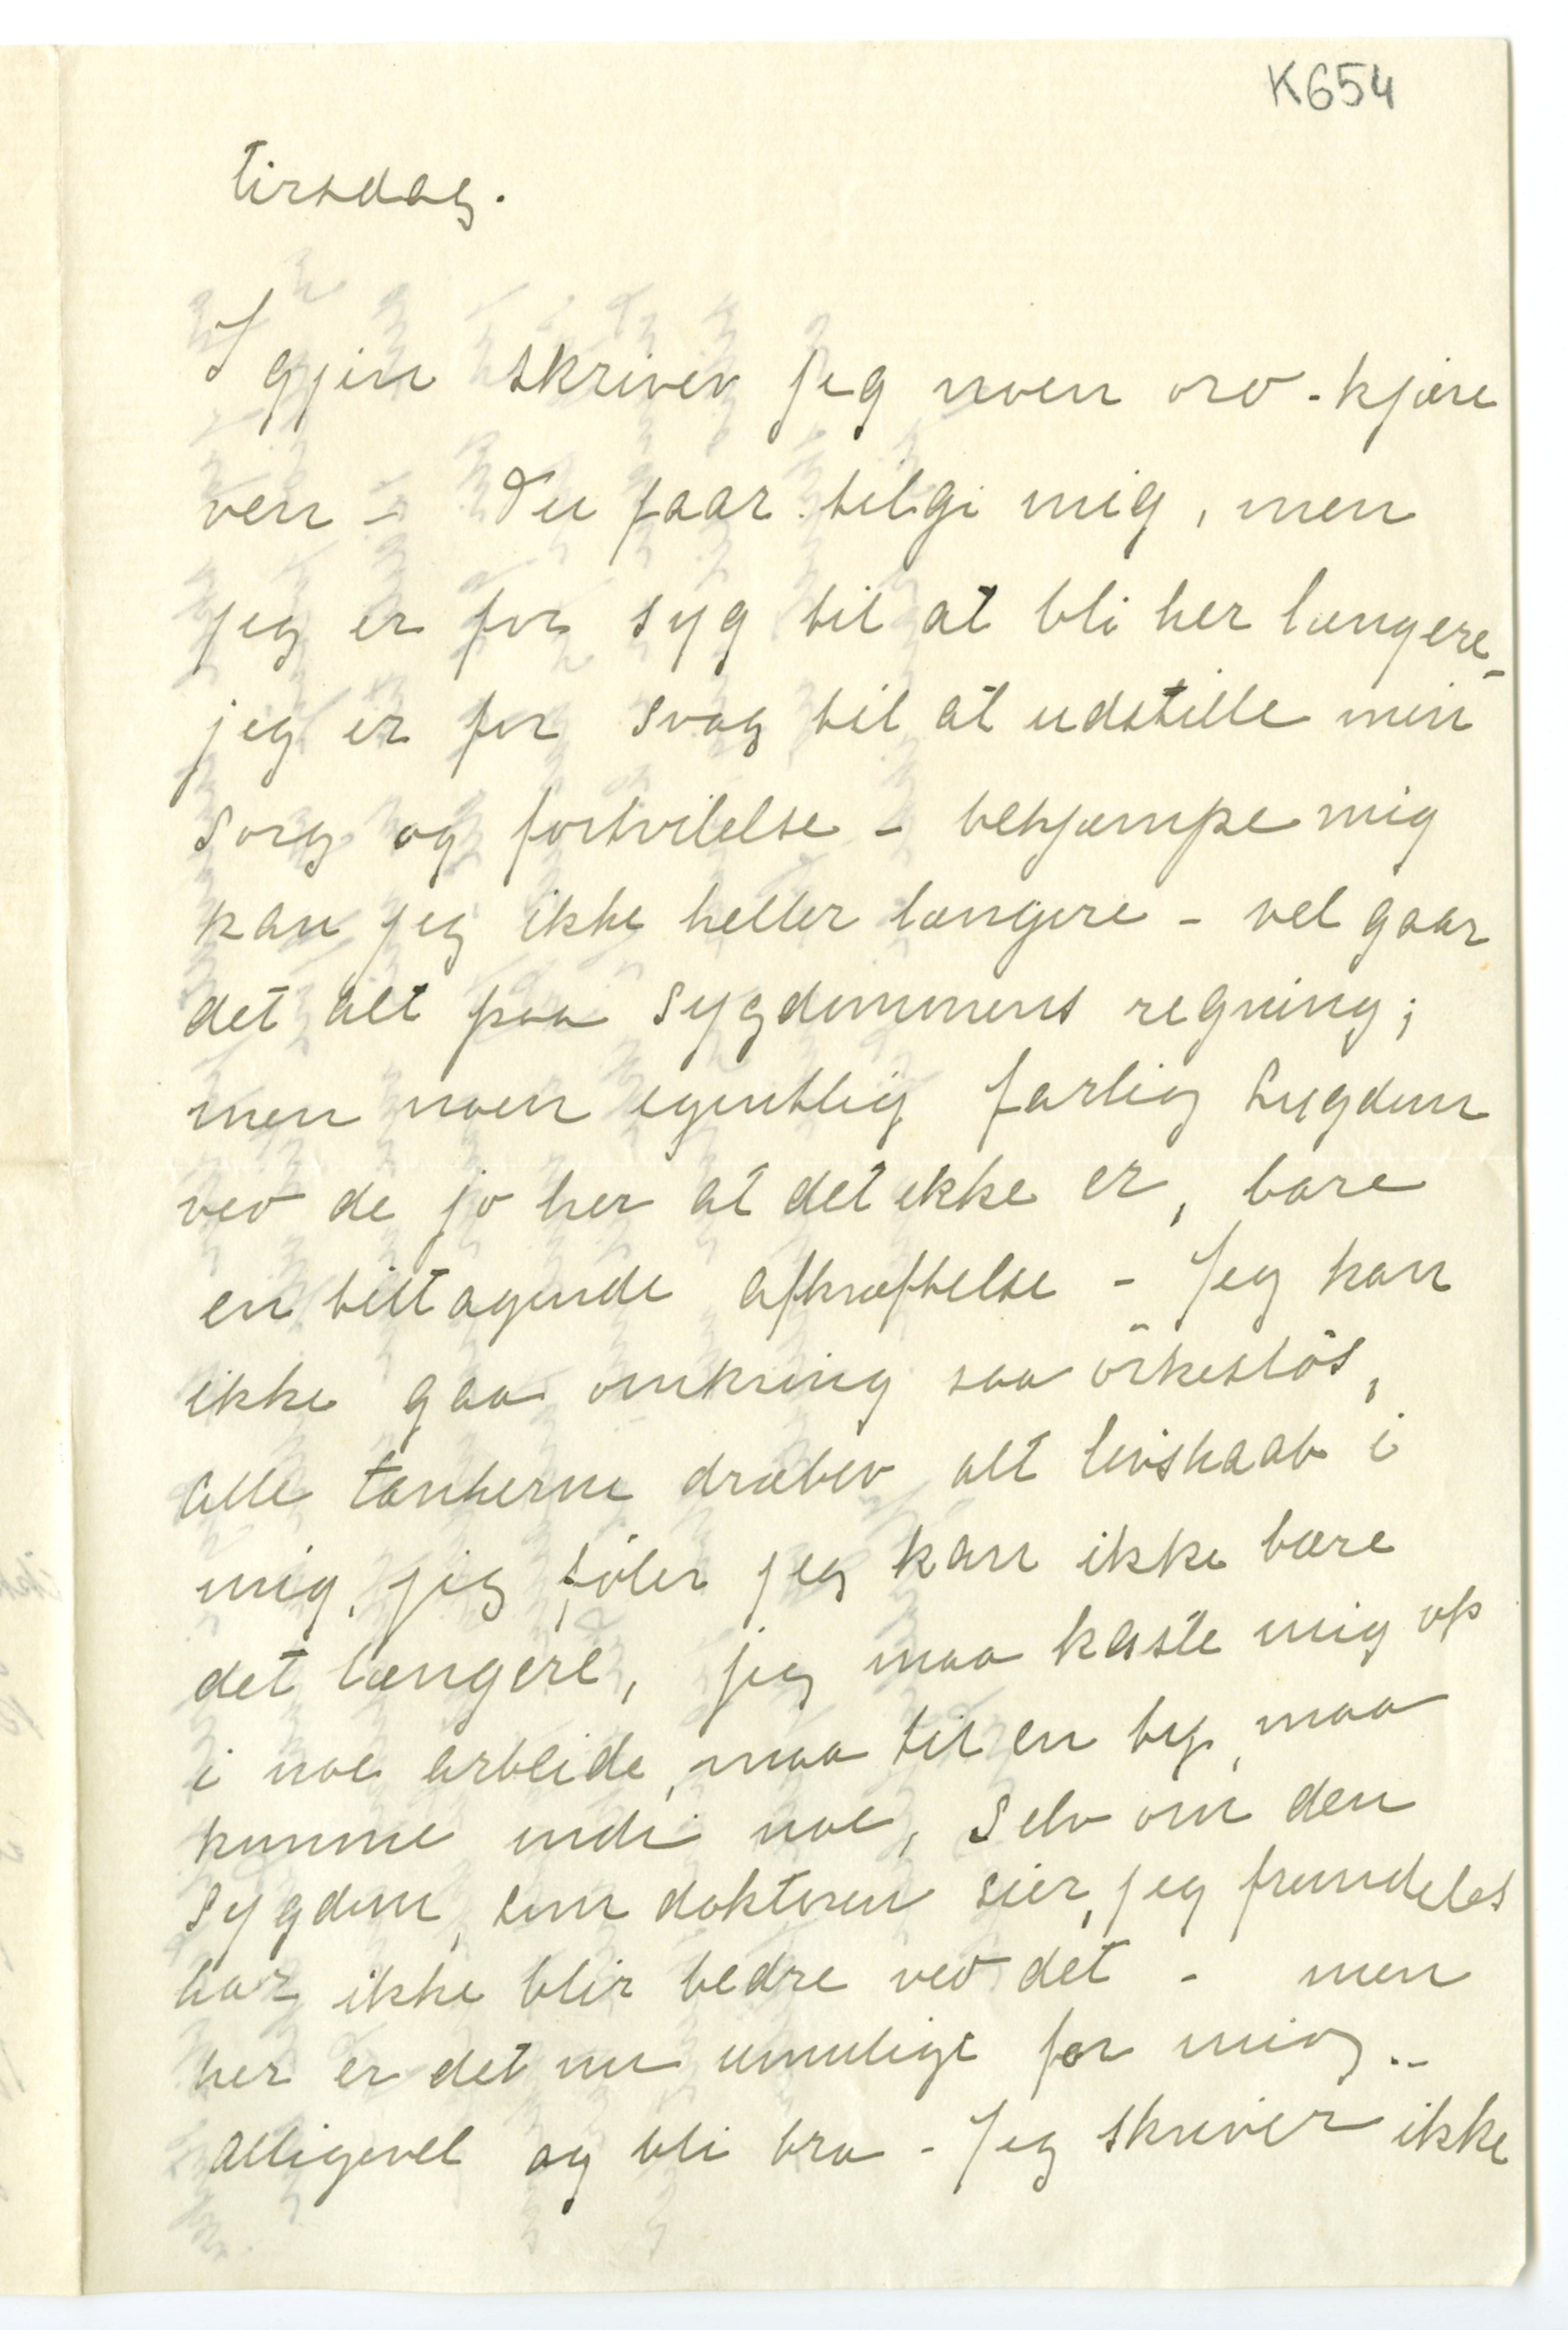 K654
Tirsdag.
Igjen skriver jeg noen ord - kjære
ven - Du faar tilgi mig, men
jeg er for syg til at bli her længere -
jeg er for svag til at udstille min
sorg og fortvilelse - bekjæmpe mig
kan jeg ikke heller længere - vel gaar
det alt paa sygdommens regning;
men noen egentlig farlig sygdom
ved de jo her at det ikke er, bare
en tiltagende afkræftelse - Jeg kan
ikke gaa omkring saa örkeslös,
alle tankerne dræber alt livshaab i
mig, jeg föler jeg kan ikke bære
det længere, jeg maa kaste mig op
i noe arbeide, maa til en by, maa
komme indi noe, selv om den
sygdom, som doktoren sier, jeg fremdeles
har ikke blir bedre ved det - men
her er det nu umulige for mig --
alligevel og bli bra - Jeg skriver ikke